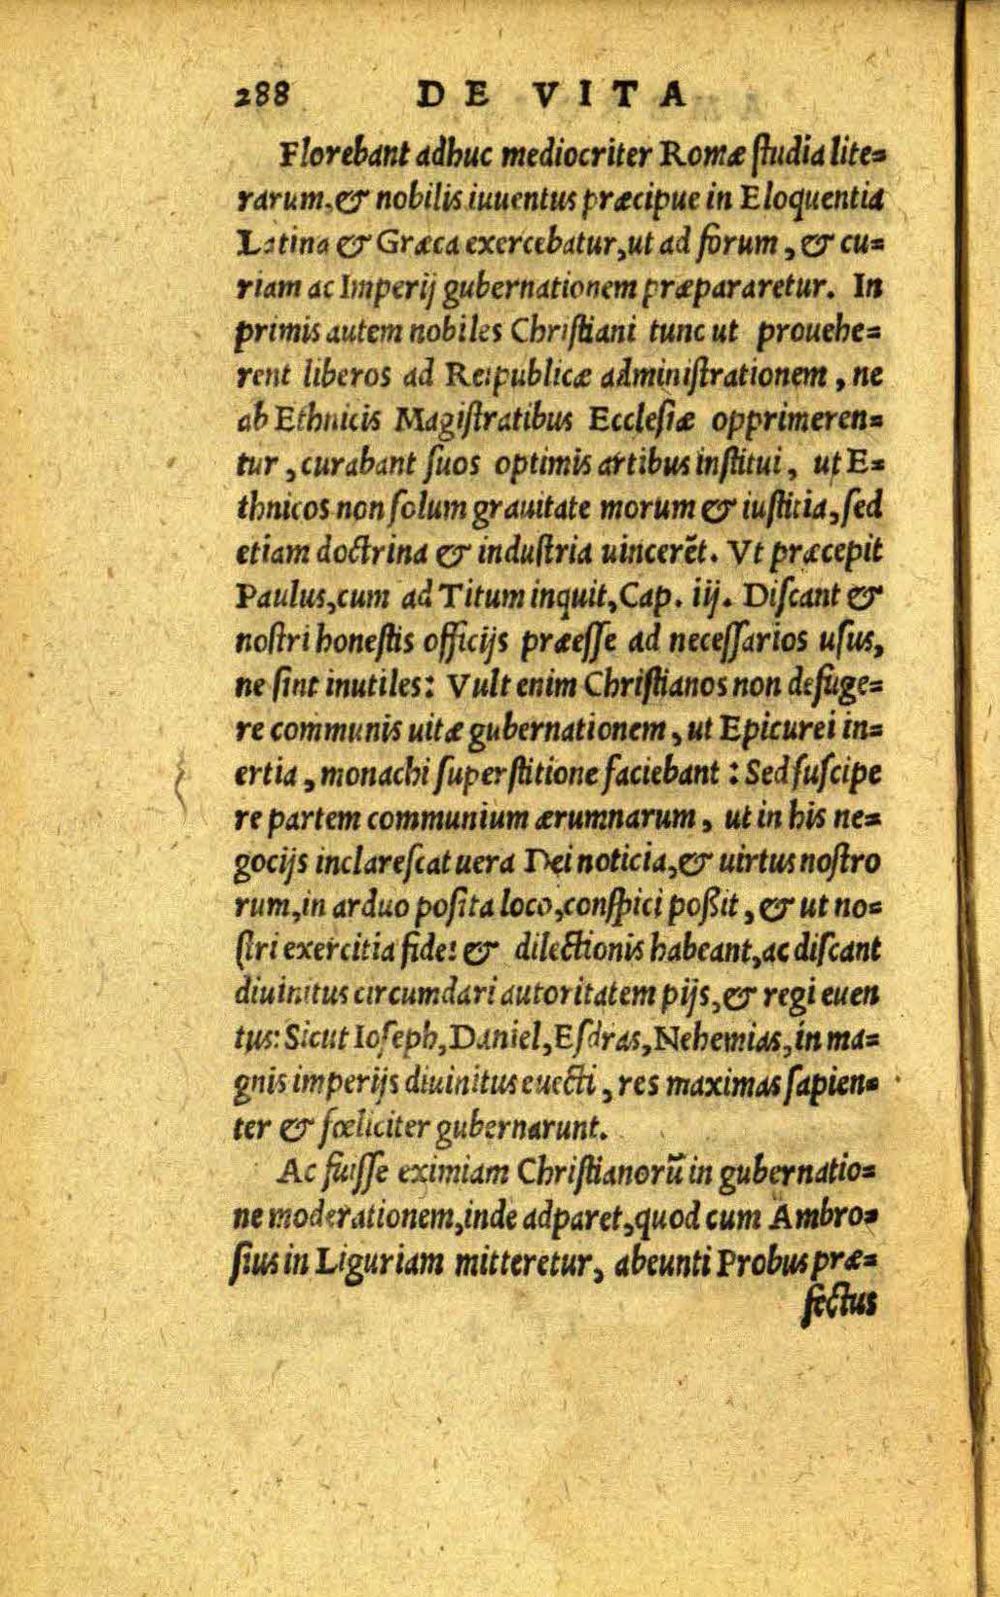 288 DE VITA
Florebant adhuc mediocriter Romæ ſtudia lite=
rarum. & nobilis iuuentus præcipue in Eloquentia
Latina & Græca exercebatur, ut ad forum, & cu=
riam ac Imperij gubernationem præpararetur. In
primis autem nobiles Chriſtiani tunc ut prouehe=
rent liberos ad Reipublicæ adminiſtrationem, ne
ab Ethnicis Magiſtratibus Eccleſiæ opprimeren=
tur, curabant ſuos optimis artibus inſtitui, ut E=
thnicos non ſolum grauitate morum & iuſticia, ſed
etiam doctrina & induſtria uincerẽt. Vt præcepit
Paulus, cum ad Titum inquit, Cap. iij. Diſcant &
noſtri honeſtis officijs præeſſe ad neceſſarios uſus,
ne ſint inutiles: Vult enim Chriſtianos non defuge=
re communis uitæ gubernationem, ut Epicurei in=
ertia, monachi ſuperſtitione faciebant: Sed ſuſcipe
re partem communium ærumnarum, ut in his ne=
gocijs inclareſcat uera Dei noticia, & uirtus noſtro
rum, in arduo poſita loco, conſpici poßit, & ut no=
ſtri exercitia fidei & dilectionis habeant, ac diſcant
diuinitus circumdari autoritatem pijs, & regi euen
tus: Sicut Ioſeph, Daniel, Eſdras, Nehemias, in ma=
gnis imperijs diuinitus euecti, res maximas ſapien=
ter & fœliciter gubernarunt.
Ac fuiſſe eximiam Chriſtianorũ in gubernatio=
ne moderationem, inde adparet, quod cum Ambro=
ſius in Liguriam mitteretur, abeunti Probus præ=
fectus